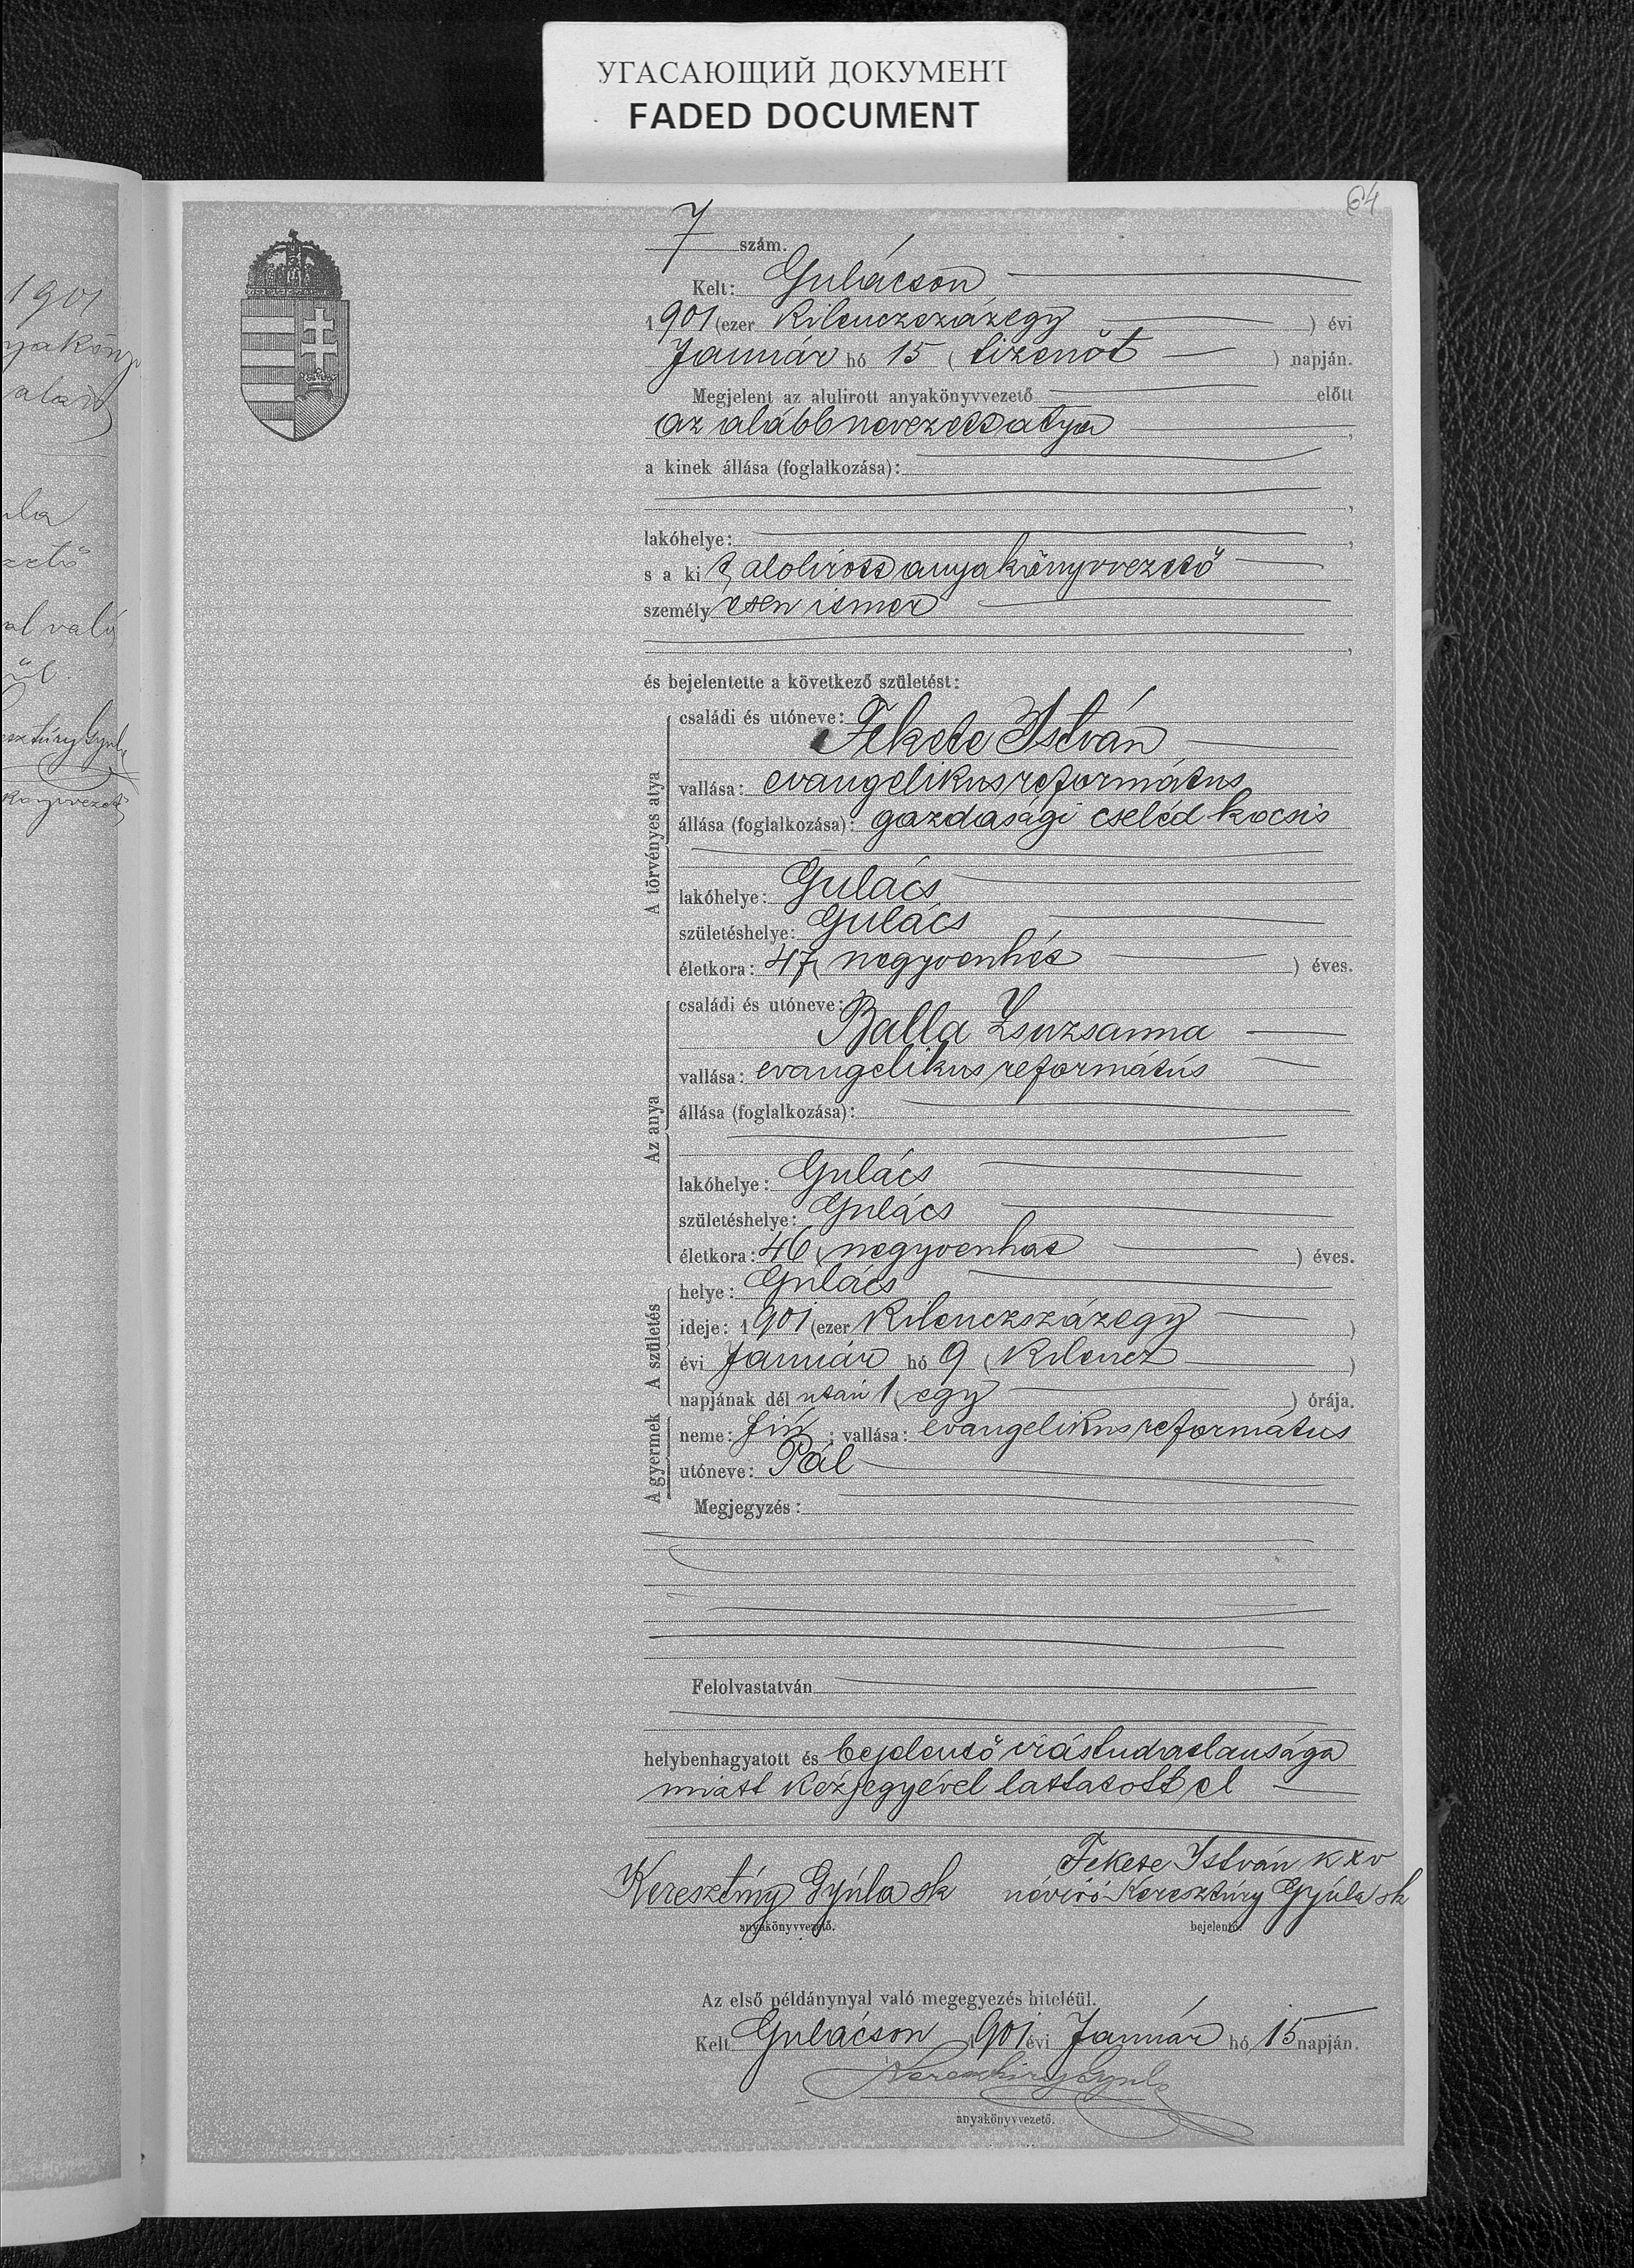 УГАСАЮЩИЙ ДОКУМЕНТ
FADED DOCUMENT
64
1901
7 szám.
Kelt: Gulácson
1901 (ezer kilenczszázegy ) évi
Január hó 15 (tizenöt ) napján.
Megjelent az alulirott anyakönyvvezető előtt
az alább nevezett atya ,
a kinek állása (foglalkozása):
,
lakóhelye: ,
s a kit alolirott anyakönyvvezető
személyesen ismer
,
és bejelentette a következő születést:
A törvényes atya
családi és utóneve:
Fekete István
vallása: evangelikus református
állása (foglalkozása): gazdasági cseléd kocsis
lakóhelye: Gulács
születéshelye: Gulács
életkora: 47 (negyvenhét ) éves.
Az anya
családi és utóneve:
Balla Zsuzsanna
vallása: evangelikus református
állása (foglalkozása):
lakóhelye: Gulács
születéshelye: Gulács
életkora: 46 (negyvenhat ) éves.
A születés
helye: Gulács
ideje: 1901 (ezer kilenczszázegy )
évi Január hó 9 (kilencz )
napjának dél után 1 (egy ) órája.
A gyermek
neme: fiú ; vallása: evangelikus református
utóneve: Pál
Megjegyzés:
Felolvastatván
helybenhagyatott és bejelentő irástudatlansága
miatt kézjegyével láttatott el
Fekete István k x v
Keresztúry Gyula sk névíró Keresztúry Gyula sk
anyakönyvvezető. bejelentő.
Az első példánynyal való megegyezés hiteléül.
Kelt Gulácson 1901 évi Január hó 15 napján.
Keresztúry Gyula
anyakönyvvezető.